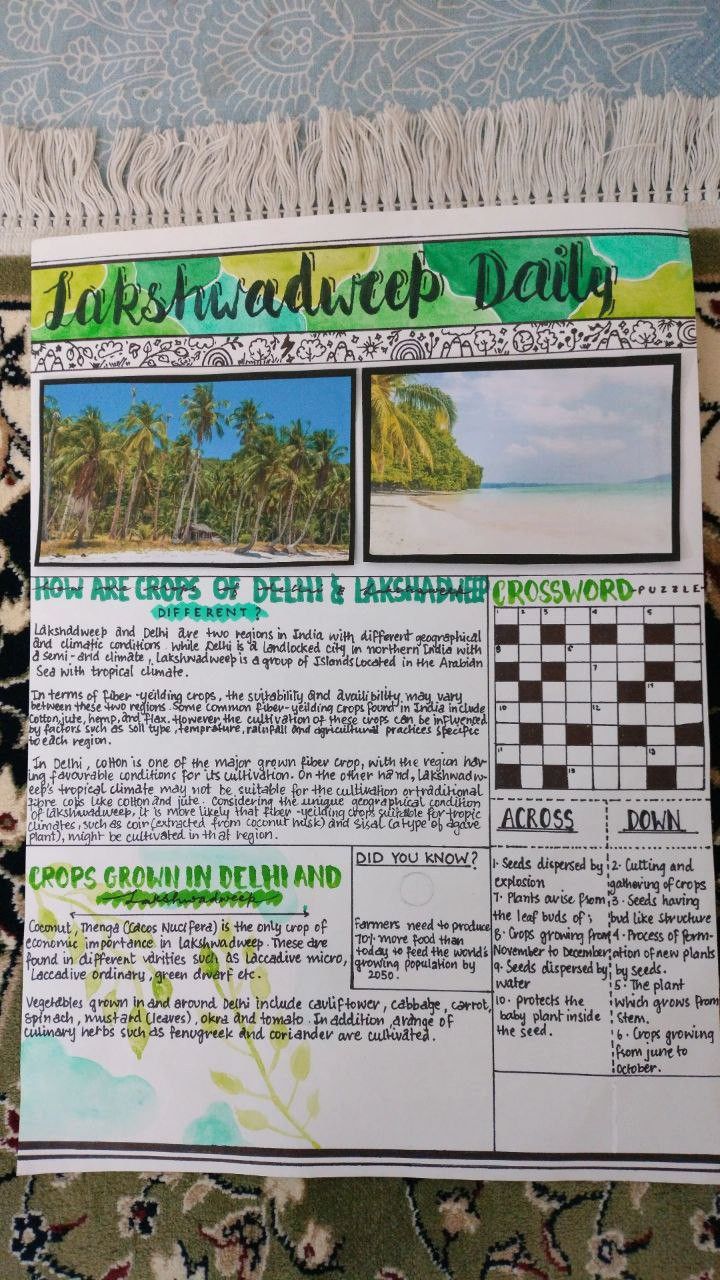 Lakshwadweep Daily
HOW ARE CROPS OF DELHI & LAKSHADWEEP
DIFFERENT?
Lakshadweep and Delhi are two regions in India with different geographical
and climatic conditions. While Delhi is a landlocked city in northern India with
a semi-arid climate, Lakshwadweep is a group of Islands located in the Arabian
Sea with tropical climate.
In terms of fiber-yeilding crops, the suitability and availibility may vary
between these two regions. Some common fiber-yeilding crops found in India include
Cotton, jute, hemp, and flax. However the cultivation of these crops can be influenced
by factors such as soil type, temprature, rainfall and agricultural practices specific
to each region.
In Delhi, cotton is one of the major grown fiber crop, with the region hav-
ing favourable conditions for its cultivation. On the other hand, Lakshwadw-
eep's tropical climate may not be suitable for the cultivation or traditional
fibre cops like cotton and jute. Considering the unique geographical condition
of Lakshwadweep, it is more likely that fiber-yeilding crops suitable for tropic
climates, such as coir (extracted from coconut husk) and sisal (a type of agave
plant), might be cultivated in that region.
CROPS GROWN IN DELHI AND
Lakshadweep
Coconut, Thenga (Cocos Nucifera) is the only crop of
economic importance in Lakshwadweep. These are
found in different varities such as Laccadive micro,
Laccadive ordinary, green dwarf etc.
Vegetables grown in and around Delhi include cauliflower, cabbage, carrot,
spinach, mustard (leaves), okra and tomato. In addition, a range of
culinary herbs such as fenugreek and coriander are cultivated.
DID YOU KNOW?
Farmers need to produce
70% more food than
today to feed the world's
growing population by
2050.
CROSSWORD PUZZLE
1 2 3 4 5
8 6
7
9 14
10 12
11 13
15
ACROSS
1. Seeds dispersed by
explosion
7. Plants arise from
the leaf buds of;
8. Crops growing from
November to December
9. Seeds dispersed by
water
10. protects the
baby plant inside
the seed.
DOWN
2. Cutting and
gathering of crops
3. Seeds having
bud like structure
4. Process of form-
ation of new plants
by seeds.
5. The plant
which grows from
stem.
6. Crops growing
from june to
October.